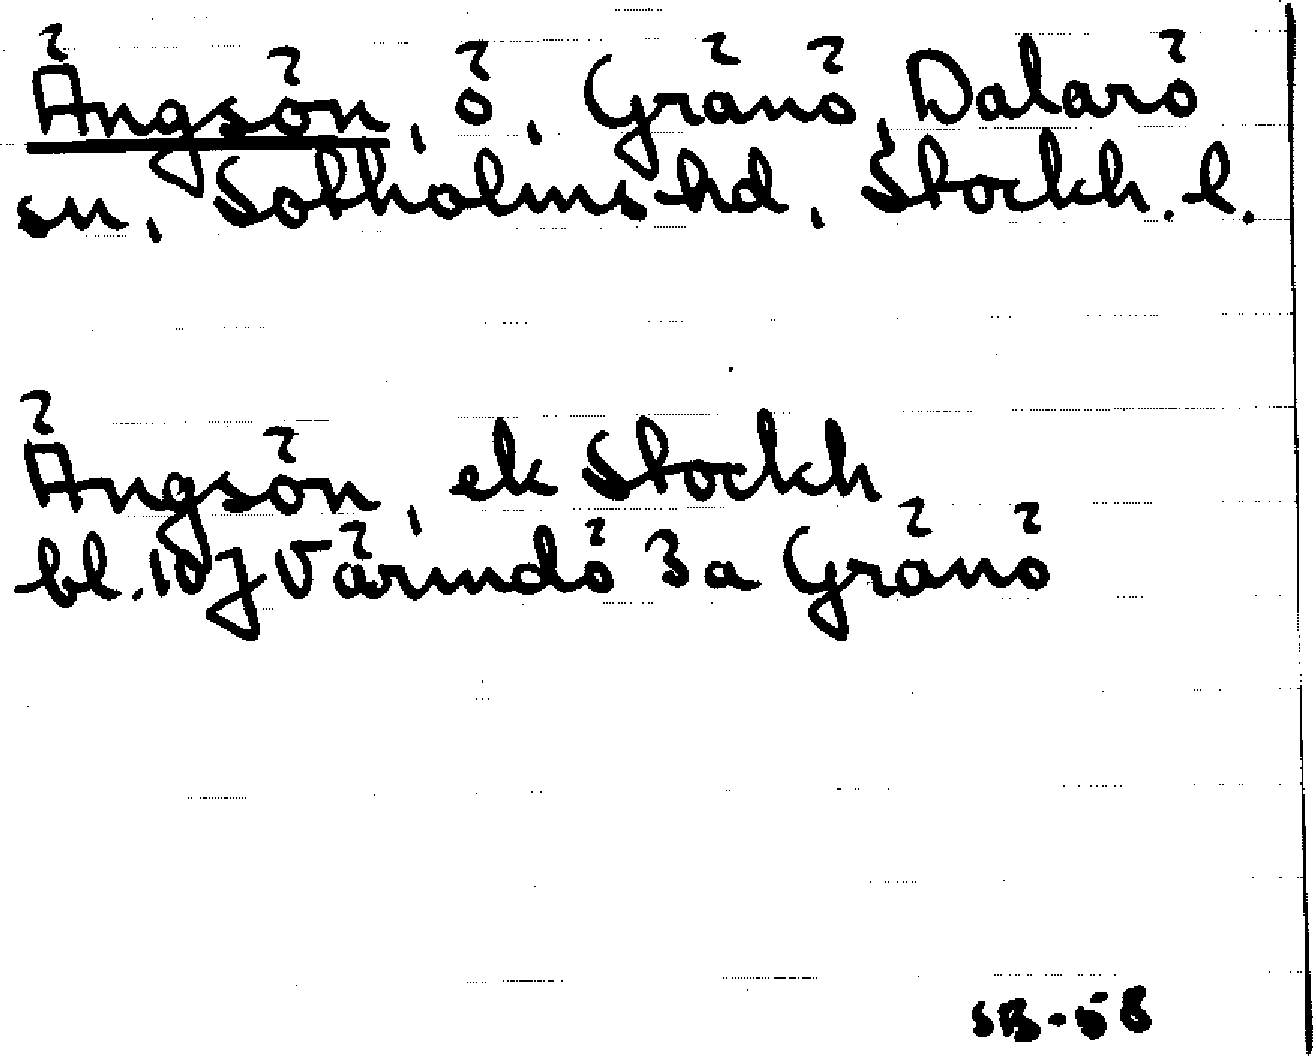 Ängsön, ö, Gränö, Dalarö
sn, Sotholms hd, Stockh. l.
Ängsön, ek Stockh
bl. 107 Värmdö 3a Gränö
SB-58